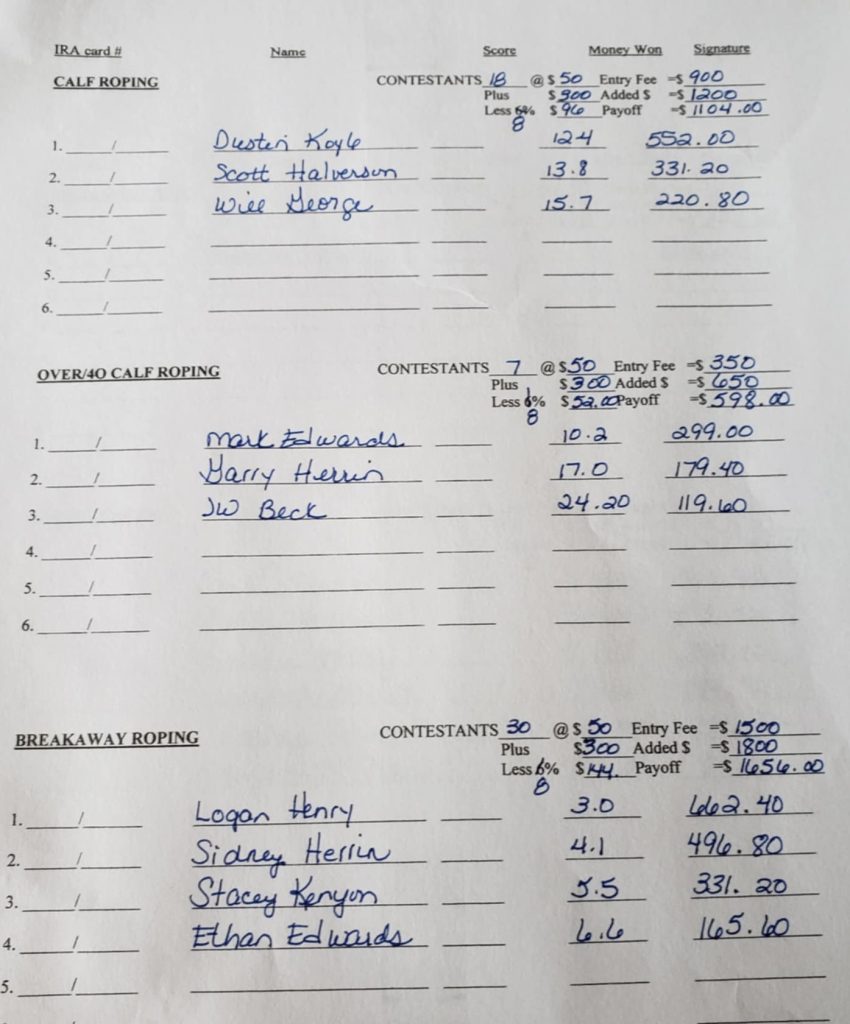 IRA card # Name Score Money Won Signature
CALF ROPING CONTESTANTS 18 @ $ 50 Entry Fee =$ 900
Plus $ 300 Added $ =$ 1200
Less 6% 8 $ 96 Payoff =$ 1104.00
1. / Dusten Koyle 12.4 552.00
2. / Scott Halverson 13.8 331.20
3. / Will George 15.7 220.80
4. /
5. /
6. /
OVER/40 CALF ROPING CONTESTANTS 7 @ $ 50 Entry Fee =$ 350
Plus $ 300 Added $ =$ 650
Less 6% 8 $ 52.00 Payoff =$ 598.00
1. / Mark Edwards 10.2 299.00
2. / Garry Herrin 17.0 179.40
3. / JW Beck 24.20 119.60
4. /
5. /
6. /
BREAKAWAY ROPING CONTESTANTS 30 @ $ 50 Entry Fee =$ 1500
Plus $ 300 Added $ =$ 1800
Less 6% 8 $ 144. Payoff =$ 1656.00
1. / Logan Henry 3.0 662.40
2. / Sidney Herrin 4.1 496.80
3. / Stacey Kenyon 5.5 331.20
4. / Ethan Edwards 6.6 165.60
5. /